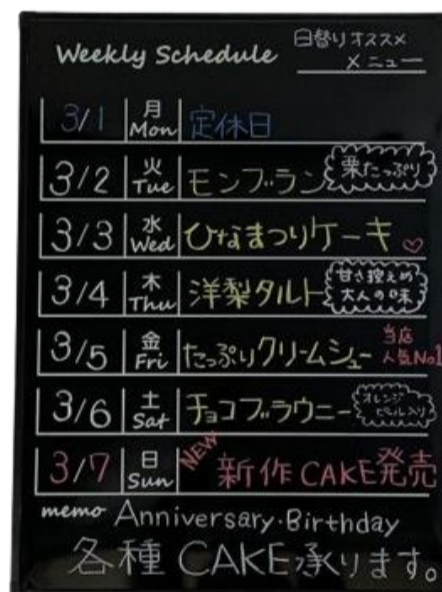 Weekly Schedule 日替りオススメ
メニュー
3/1 月 Mon 定休日
3/2 火 Tue モンブラン 栗たっぷり
3/3 水 Wed ひなまつりケーキ♡
3/4 木 Thu 洋梨タルト 甘さ控えめ
大人の味
3/5 金 Fri たっぷりクリームシュー 当店
人気No1
3/6 土 Sat チョコブラウニー オレンジ
ピール入り
3/7 日 Sun NEW 新作CAKE発売
memo Anniversary・Birthday
各種CAKE承ります。